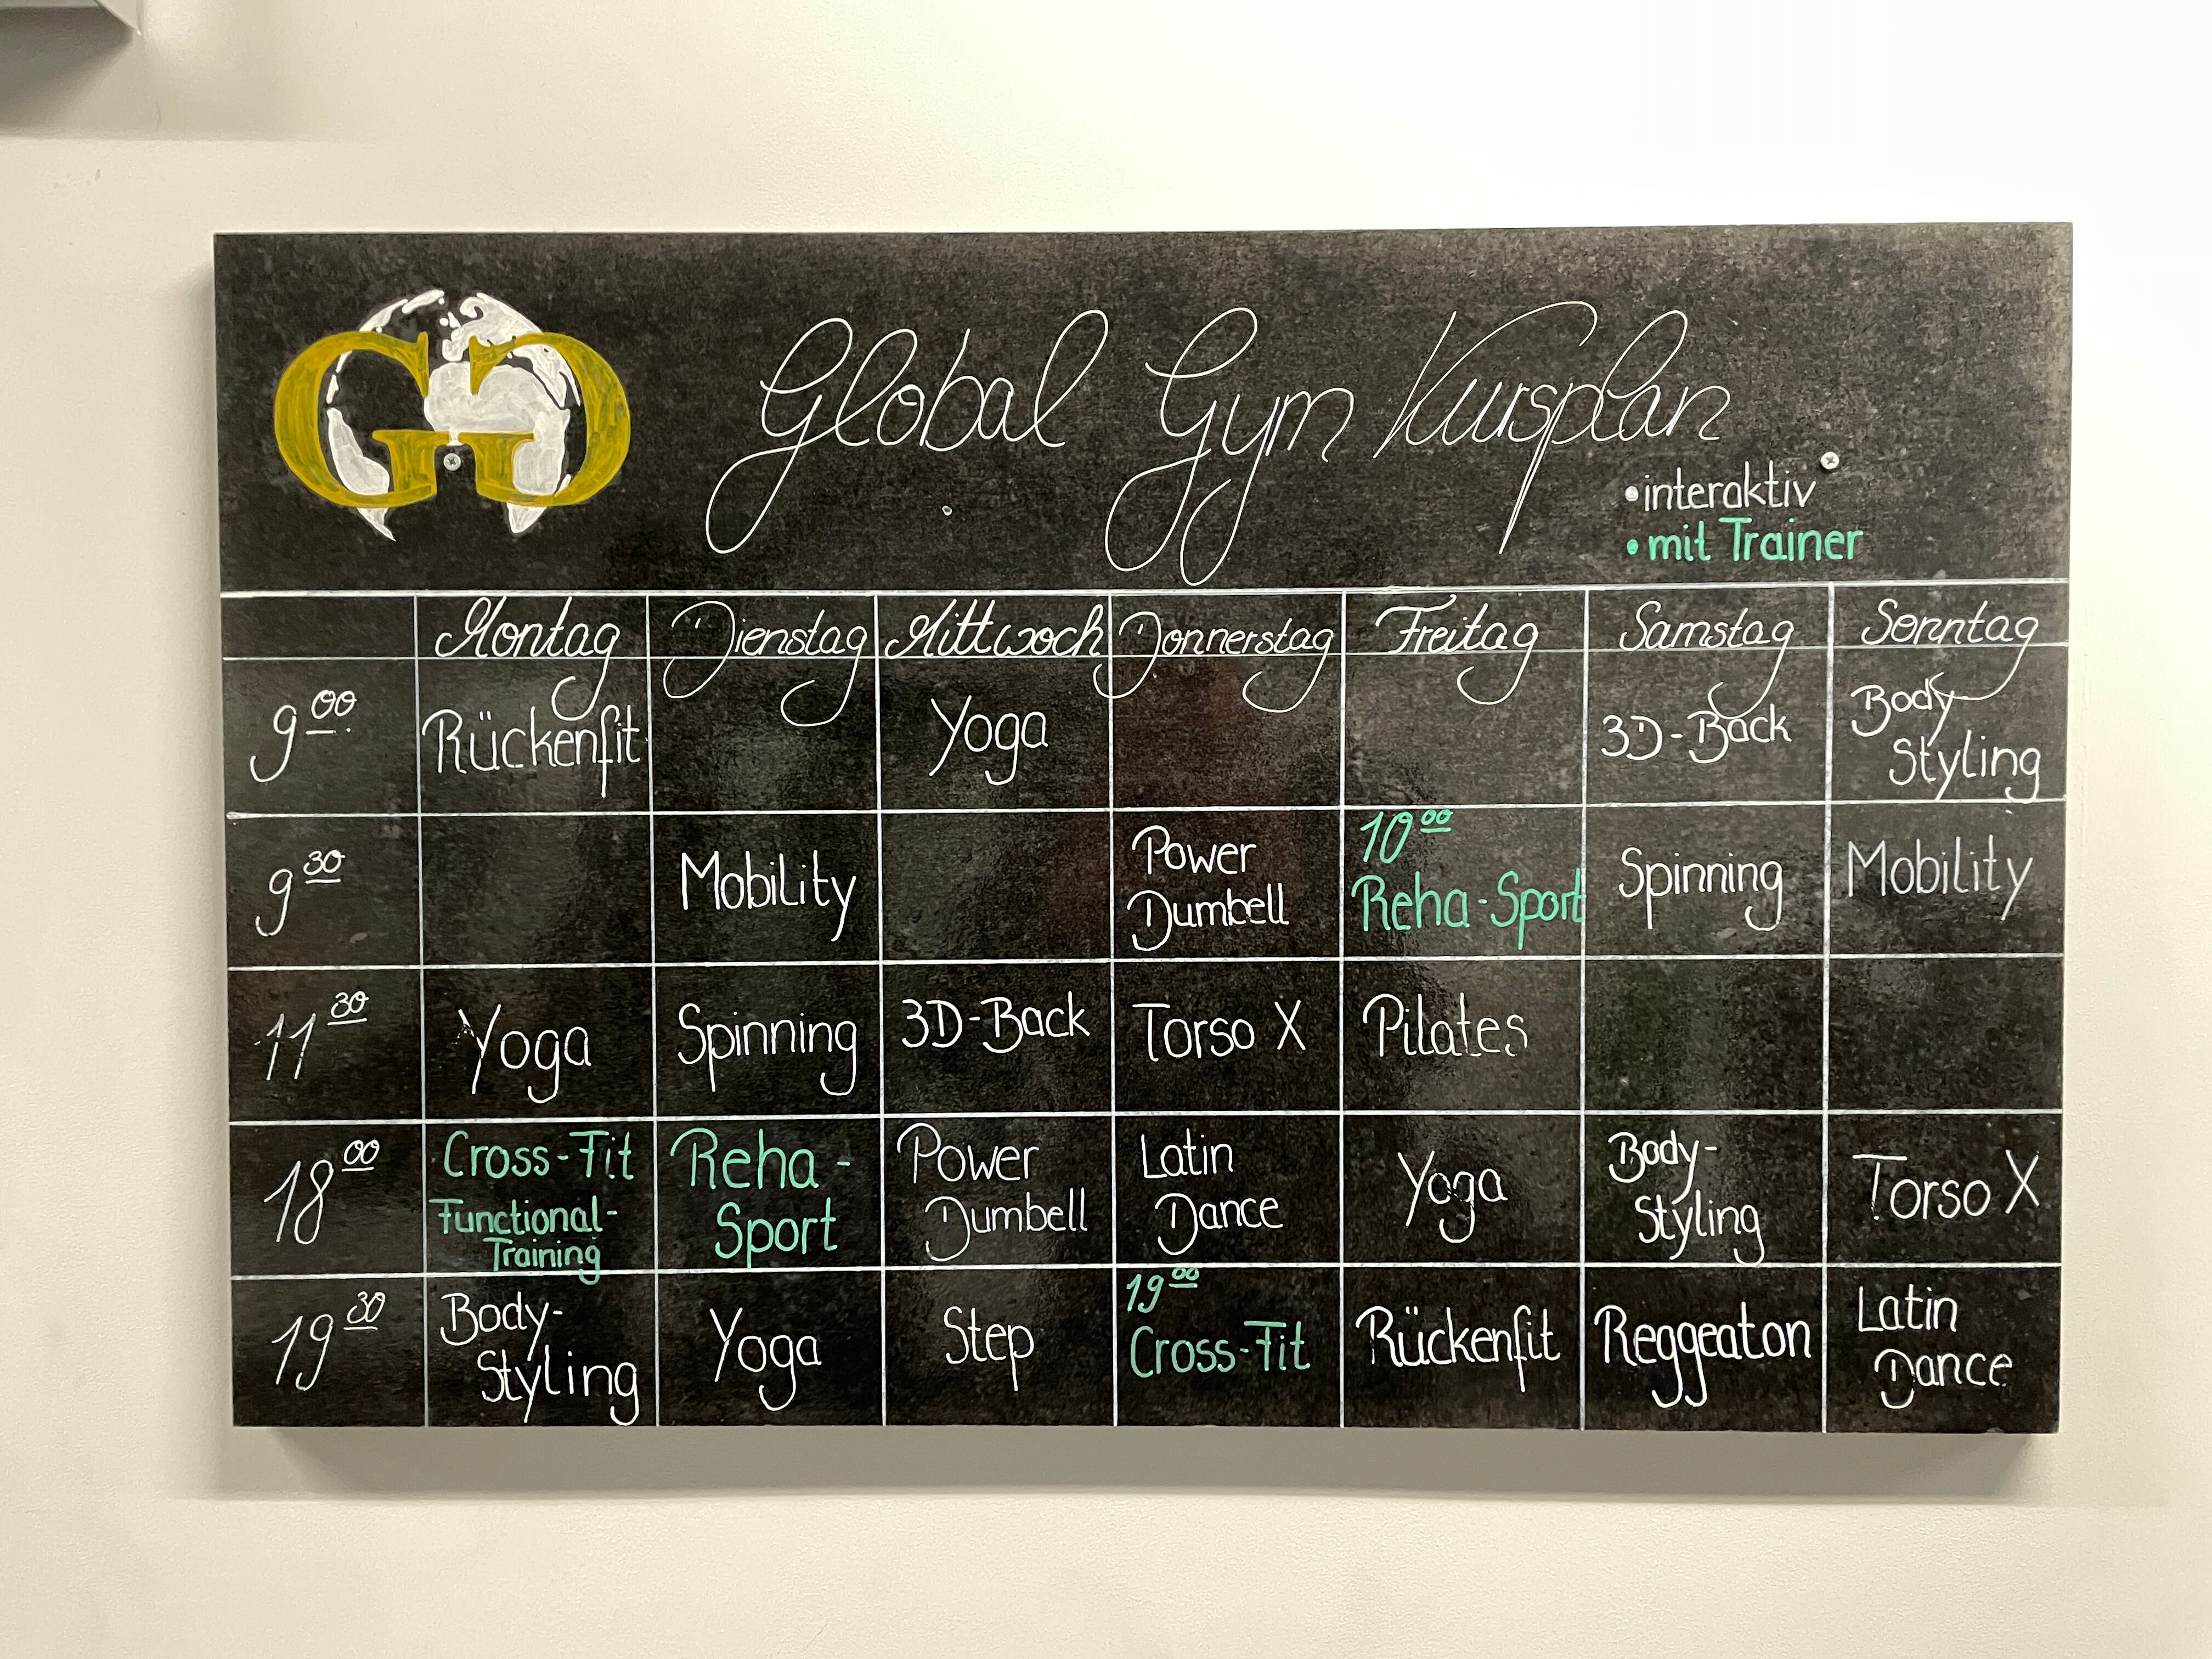 GG
Global Gym Kursplan
• interaktiv
• mit Trainer
Montag Dienstag Mittwoch Donnerstag Freitag Samstag Sonntag
9 00 Rückenfit Yoga 3D-Back Body
Styling
9 30 Mobility Power
Dumbell 10 00
Reha-Sport Spinning Mobility
11 30 Yoga Spinning 3D-Back Torso X Pilates
18 00 Cross-Fit
Functional-
Training Reha-
Sport Power
Dumbell Latin
Dance Yoga Body-
Styling Torso X
19 30 Body-
Styling Yoga Step 19 00
Cross-Fit Rückenfit Reggeaton Latin
Dance